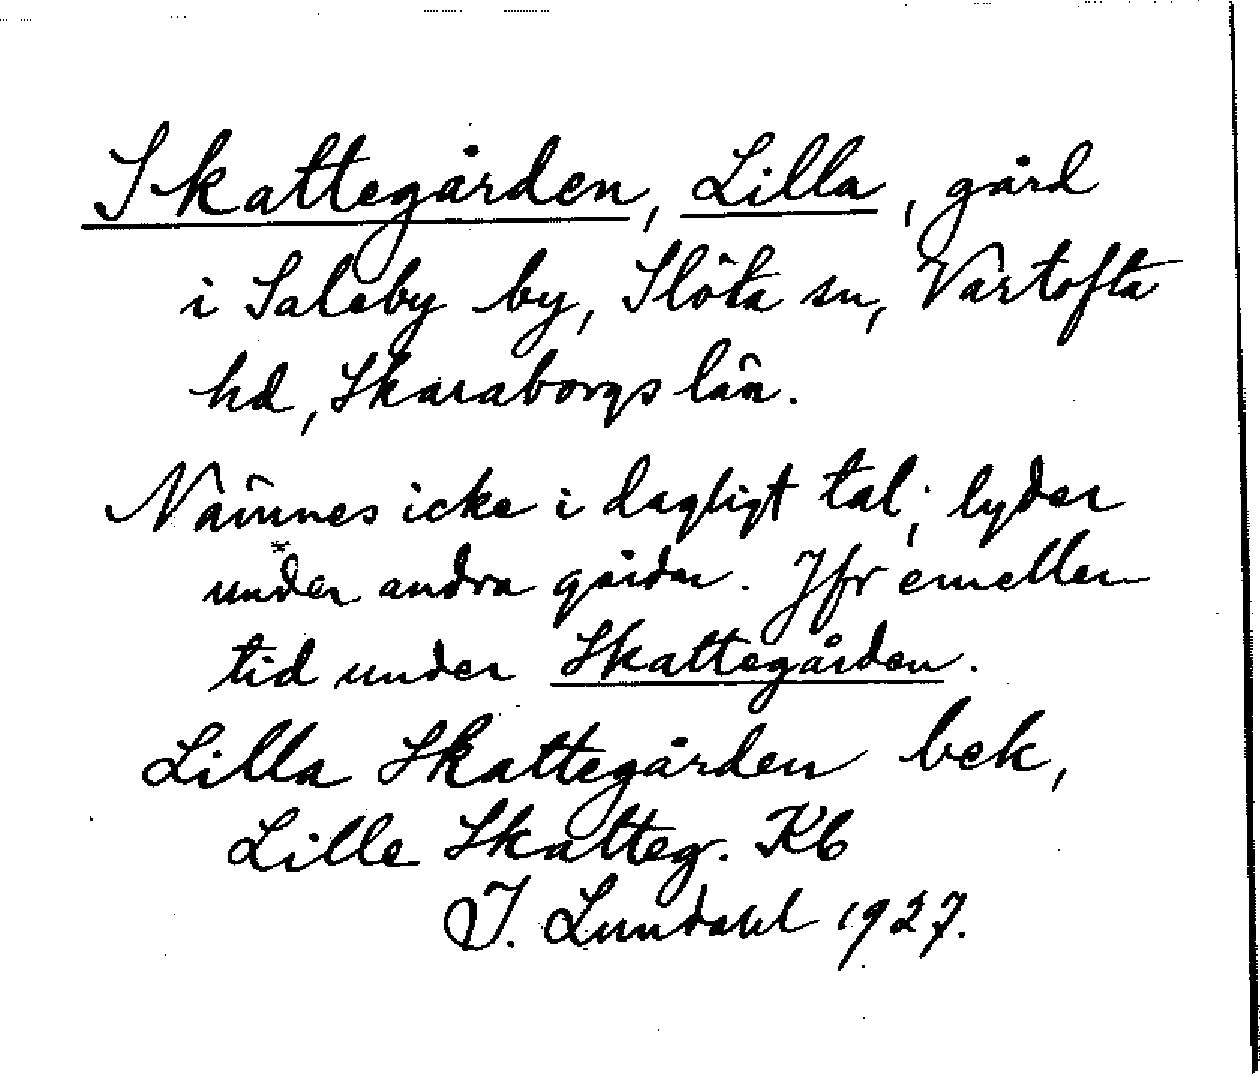 Skattegården, Lilla, gård
i Saleby by, Slöta sn, Vartofta
hd, Skaraborgs län.
Nämnes icke i dagligt tal; lyder
under andra gårdar. Jfr emeller
tid under Skattegården.
Lilla Skattegården bek,
Lille Skatteg. Kb
I. Lundahl 1927.